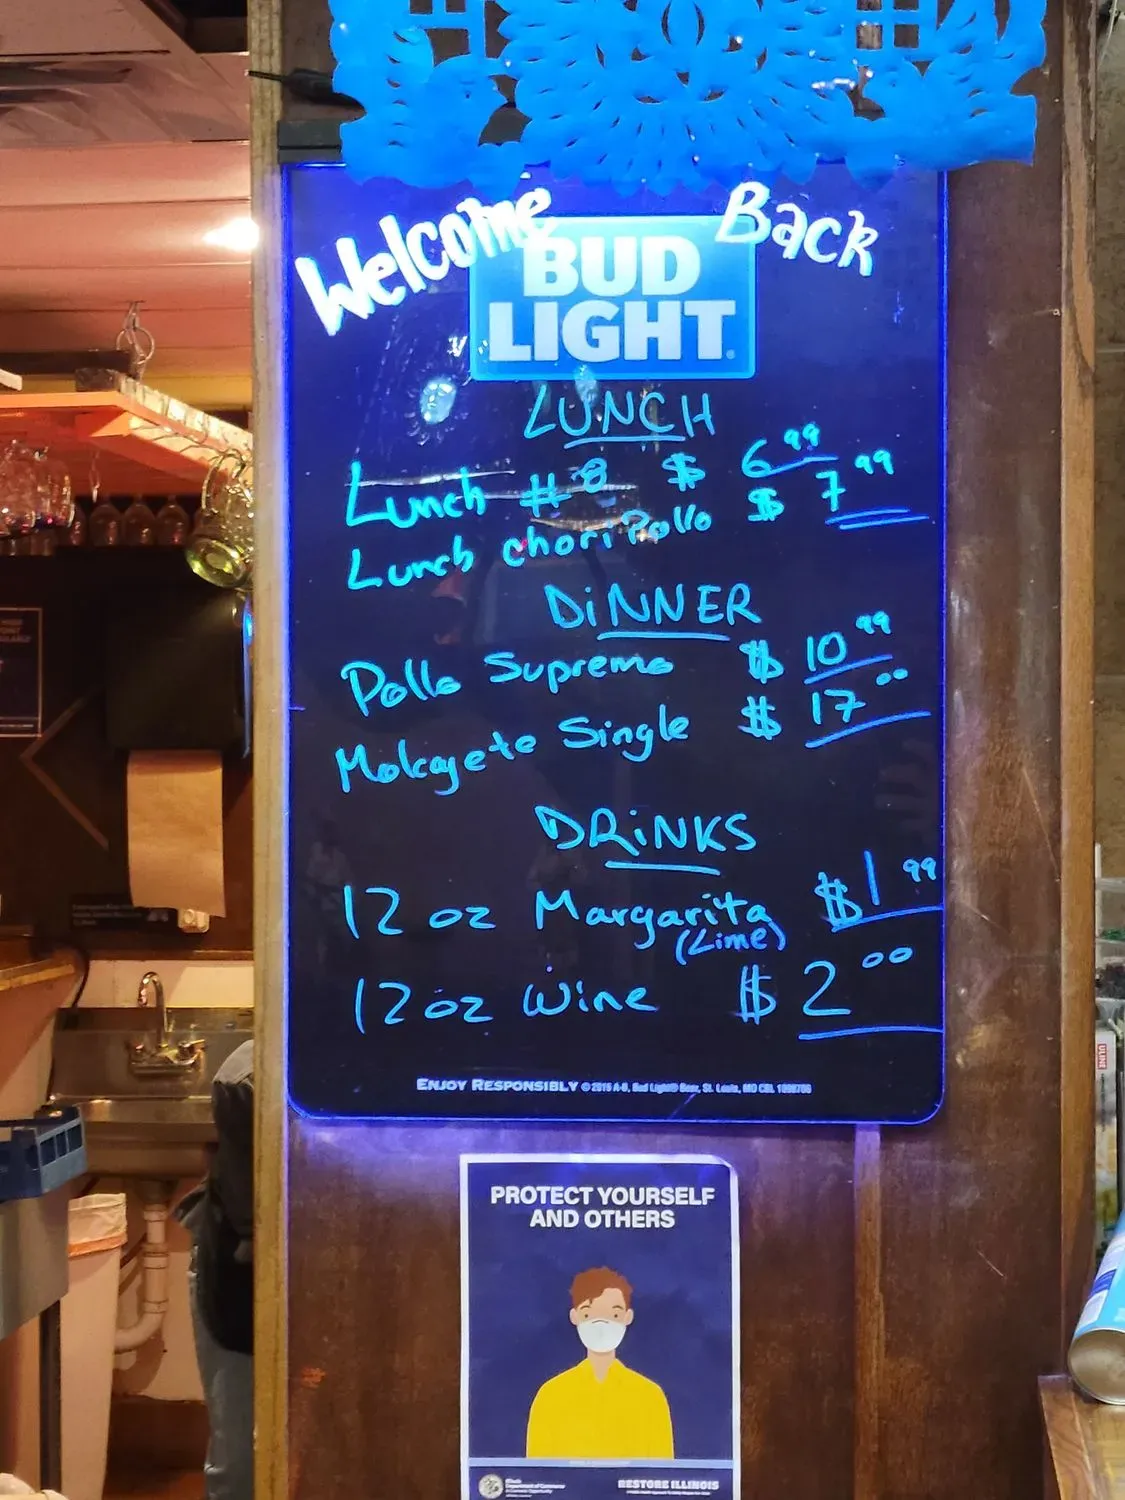 Welcome Back
BUD
LIGHT
LUNCH
Lunch #8 $ 6.99
Lunch choriPollo $ 7.99
DiNNER
Pollo Supremo $ 10.99
Molcajete Single $ 17.00
DRiNKS
12 oz Margarita $1.99
(Lime)
12 oz Wine $ 2.00
ENJOY RESPONSIBLY © 2015 A-B, Bud Light® Beer, St. Louis, MO
PROTECT YOURSELF
AND OTHERS
Illinois
Department of Commerce
RESTORE ILLINOIS
ULINE